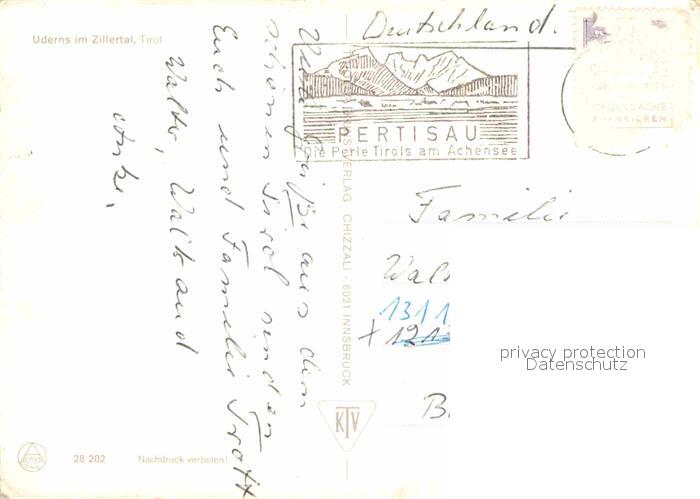 Uderns im Zillertal, Tirol
Deutschland.
PERTISAU
Die Perle Tirols am Achensee
DRUCKSACHE
FRANKIEREN
Viele Grüße aus dem
schönen Tirol senden
Euch und Familie Trott
Walter, Waltraud
VERLAG CHIZZALI · 6021 INNSBRUCK
Familie
Wals
1311
+ 121
B.
KTV
privacy protection
Datenschutz
28 202
Nachdruck verboten!